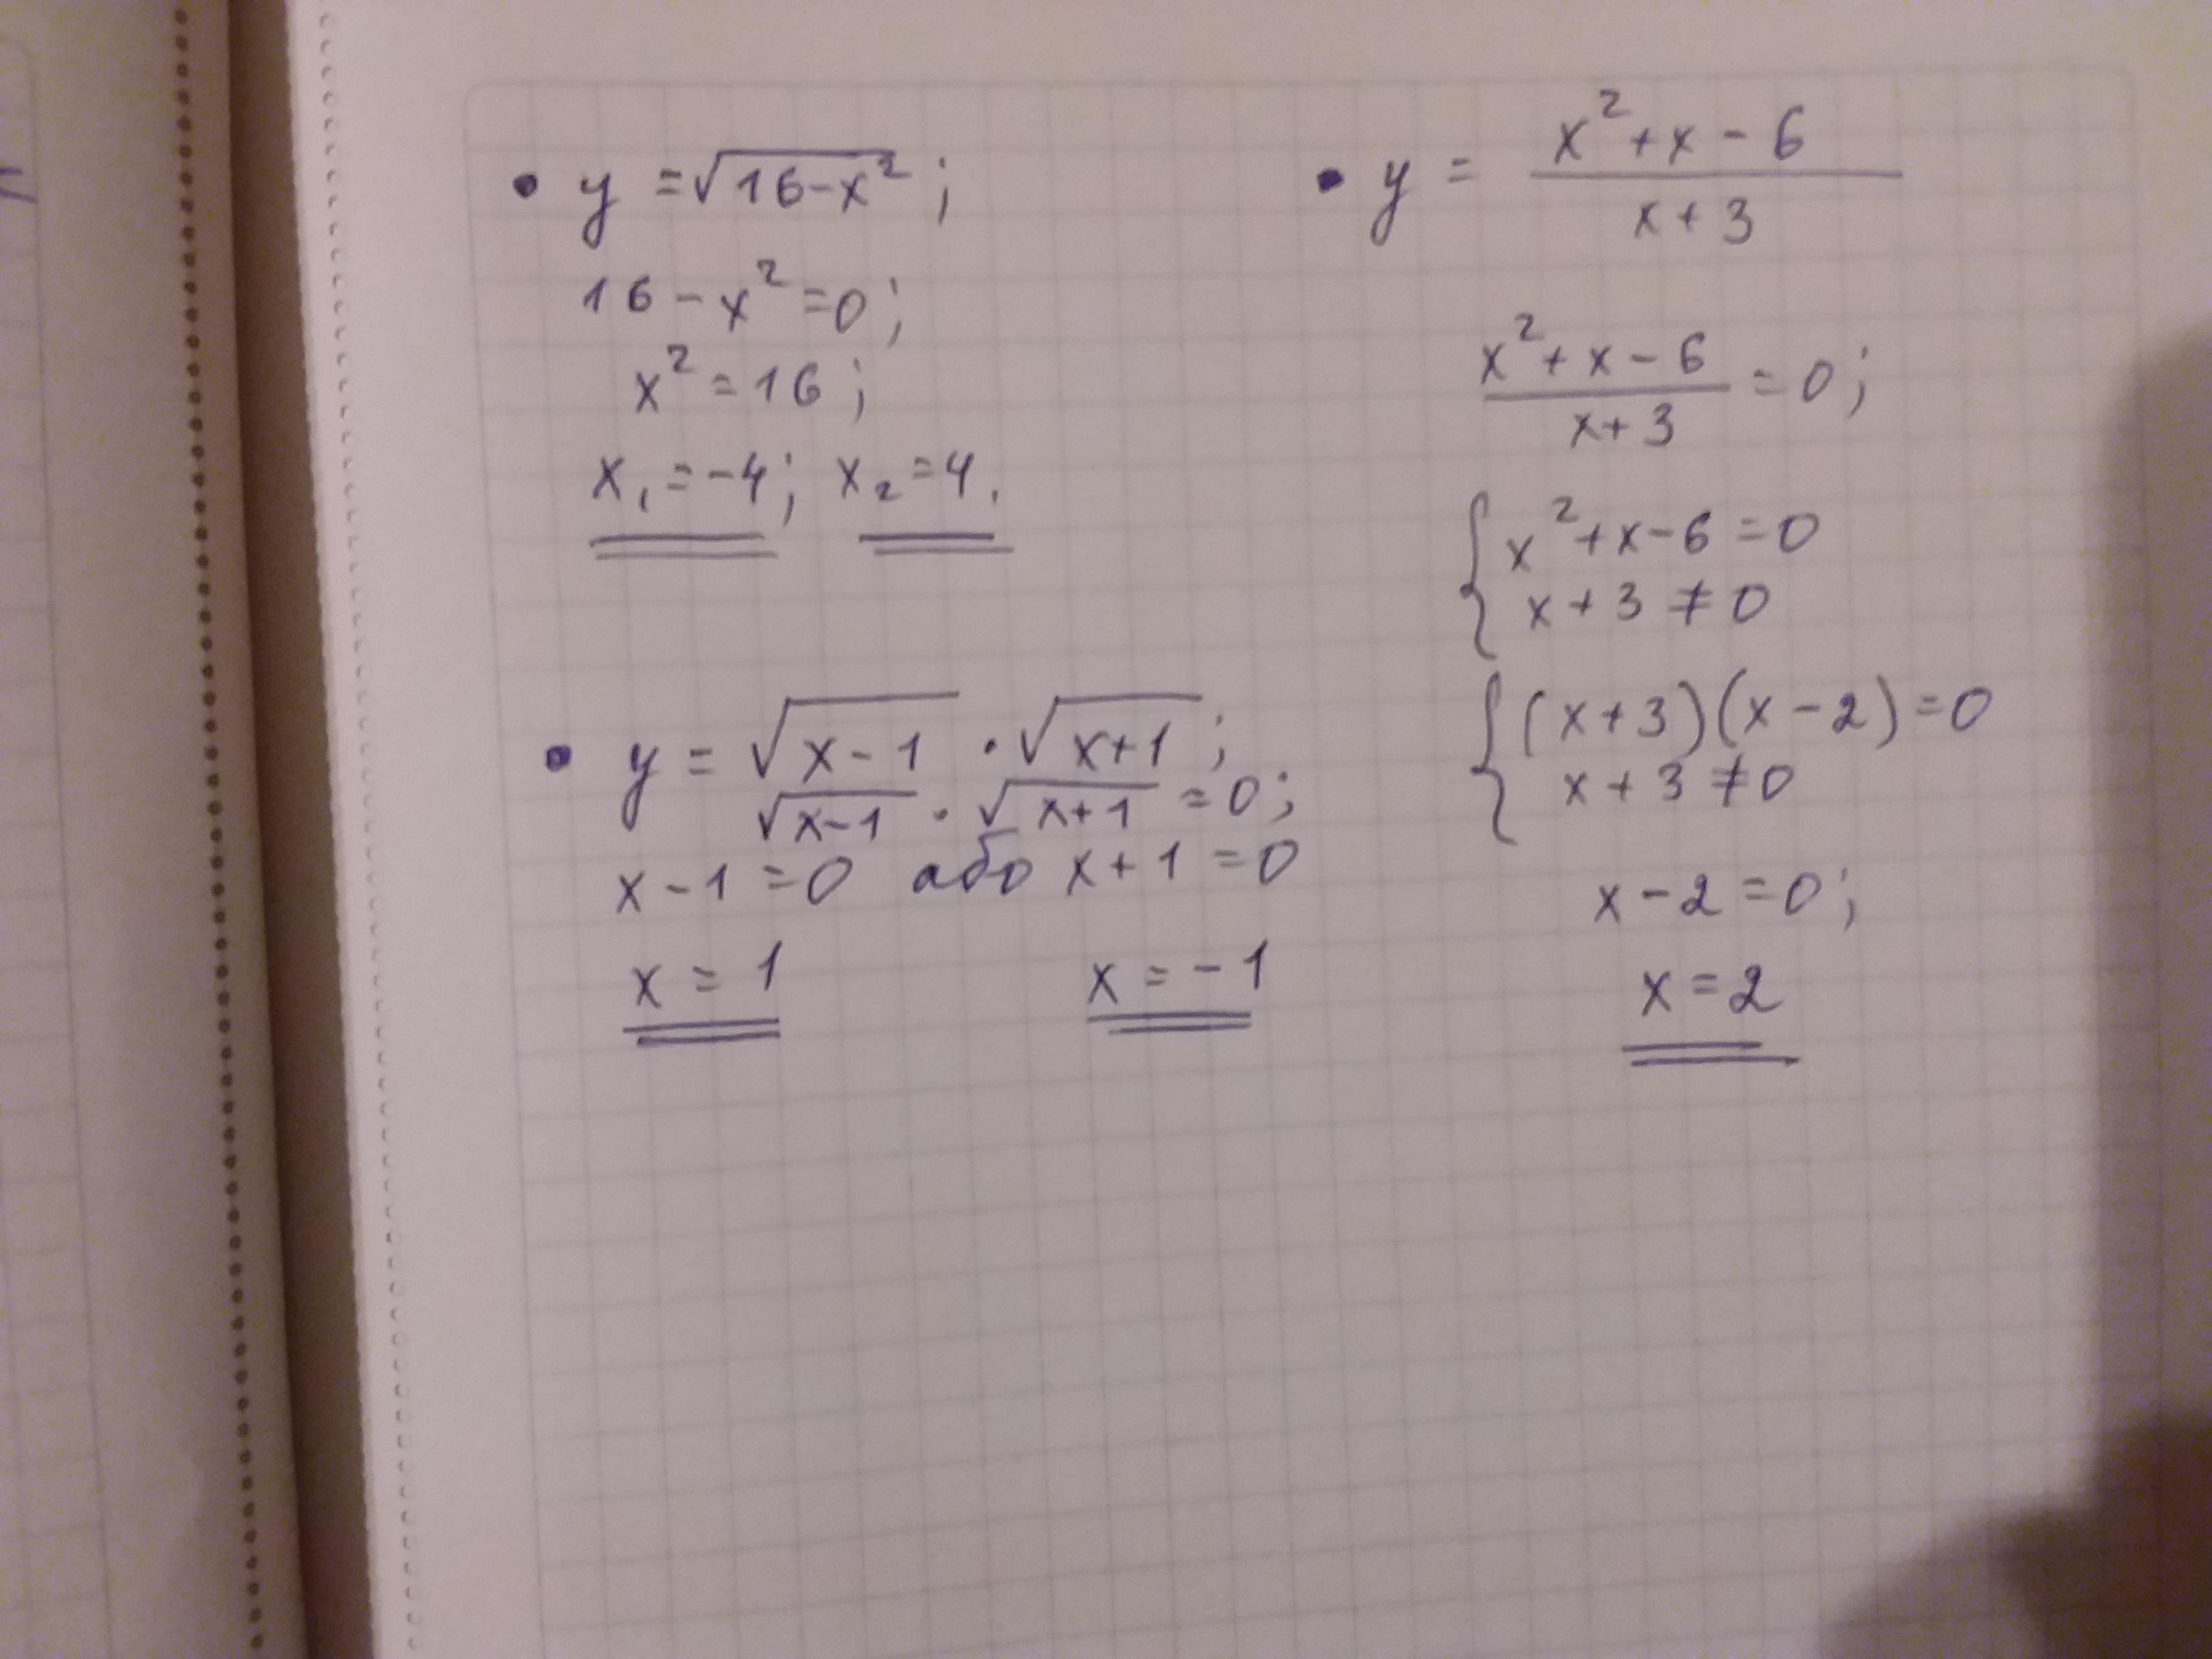 • y = √(16-x²);
16 - x² = 0;
x² = 16;
x₁ = -4; x₂ = 4.
• y = √(x-1) · √(x+1);
√(x-1) · √(x+1) = 0;
x - 1 = 0 або x + 1 = 0
x = 1 x = -1
• y = (x² + x - 6)/(x + 3)
(x² + x - 6)/(x + 3) = 0;
{ x² + x - 6 = 0
x + 3 ≠ 0
{ (x + 3)(x - 2) = 0
x + 3 ≠ 0
x - 2 = 0;
x = 2